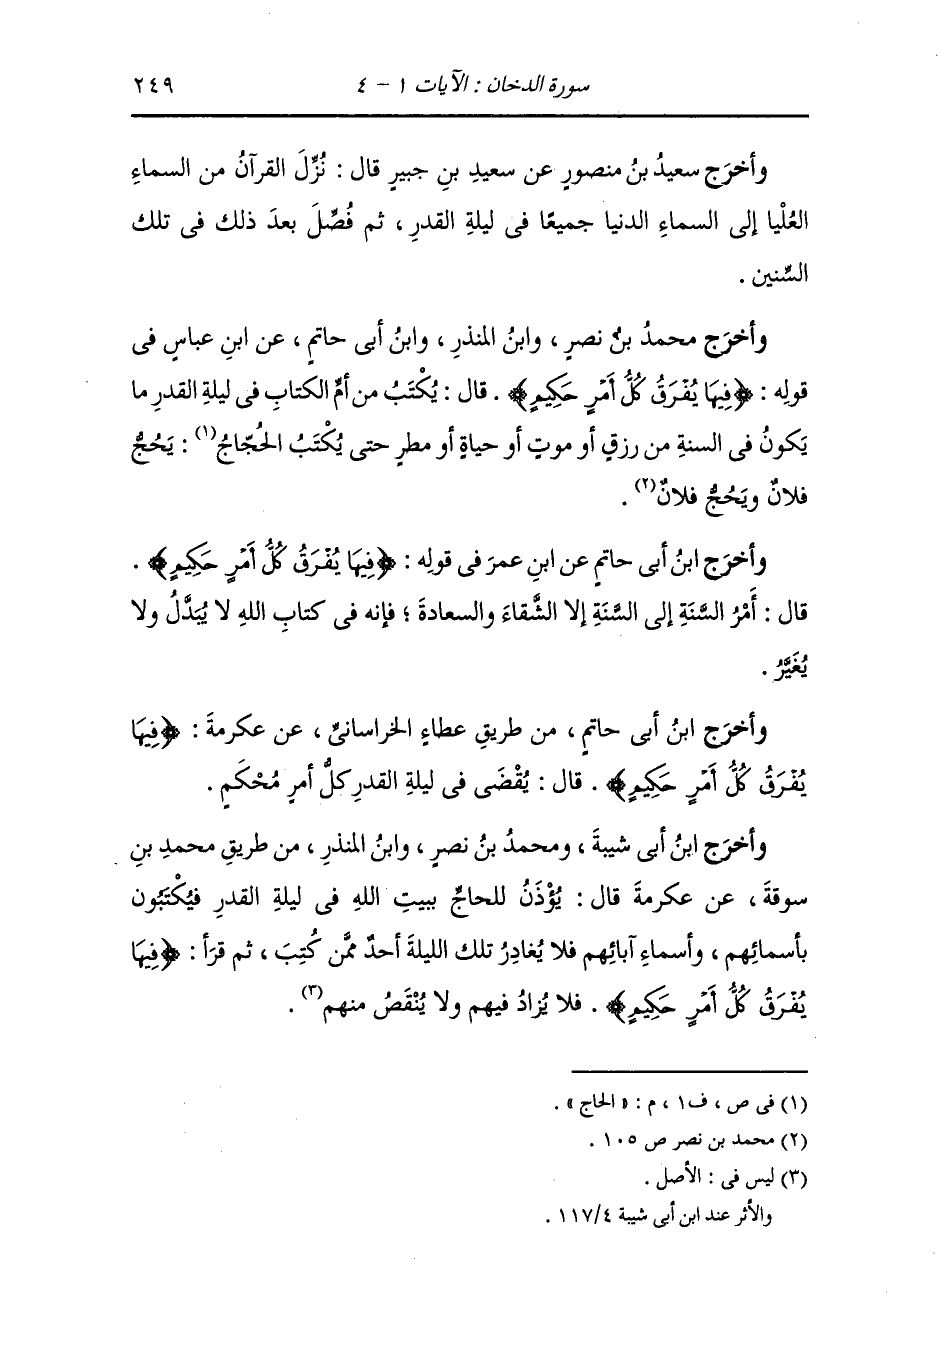 سورة الدخان : الآيات ١ - ٤
٢٤٩
وأخرَج سعيدُ بنُ منصورٍ عن سعيدِ بنِ جبيرٍ قال : نُزِّلَ القرآنُ من السماءِ
العُلْيا إلى السماءِ الدنيا جميعًا فى ليلةِ القدرِ ، ثم فُصِّلَ بعدَ ذلك فى تلك
السِّنين .
وأخرَج محمدُ بنُ نصرٍ ، وابنُ المنذرِ ، وابنُ أبى حاتمٍ ، عن ابنِ عباسٍ فى
قولِه : ﴿فِيهَا يُفْرَقُ كُلُّ أَمْرٍ حَكِيمٍ﴾ . قال : يُكْتَبُ من أمِّ الكتابِ فى ليلةِ القدرِ ما
يَكونُ فى السنةِ من رزقٍ أو موتٍ أو حياةٍ أو مطرٍ حتى يُكْتَبُ الحُجّاجُ(١) : يَحُجُّ
فلانٌ ويَحُجُّ فلانٌ(٢) .
وأخرَج ابنُ أبى حاتمٍ عن ابنِ عمرَ فى قولِه : ﴿فِيهَا يُفْرَقُ كُلُّ أَمْرٍ حَكِيمٍ﴾ .
قال : أَمْرُ السَّنَةِ إلى السَّنَةِ إلا الشَّقاءَ والسعادةَ ؛ فإنه فى كتابِ اللهِ لا يُبَدَّلُ ولا
يُغَيَّرُ .
وأخرَج ابنُ أبى حاتمٍ ، من طريقِ عطاءٍ الخراسانىِّ ، عن عكرمةَ : ﴿فِيهَا
يُفْرَقُ كُلُّ أَمْرٍ حَكِيمٍ﴾ . قال : يُقْضَى فى ليلةِ القدرِ كلُّ أمرٍ مُحْكَمٍ .
وأخرَج ابنُ أبى شيبةَ ، ومحمدُ بنُ نصرٍ ، وابنُ المنذرِ ، من طريقِ محمدِ بنِ
سوقةَ ، عن عكرمةَ قال : يُؤْذَنُ للحاجِّ ببيتِ اللهِ فى ليلةِ القدرِ فيُكْتَبُون
بأسمائِهم ، وأسماءِ آبائِهم فلا يُغادِرُ تلك الليلةَ أحدٌ ممَّن كُتِبَ ، ثم قرَأ : ﴿فِيهَا
يُفْرَقُ كُلُّ أَمْرٍ حَكِيمٍ﴾ . فلا يُزادُ فيهم ولا يُنْقَصُ منهم(٣) .
(١) فى ص ، ف١ ، م : « الحاج » .
(٢) محمد بن نصر ص ١٠٥ .
(٣) ليس فى : الأصل .
والأثر عند ابن أبى شيبة ١١٧/٤ .